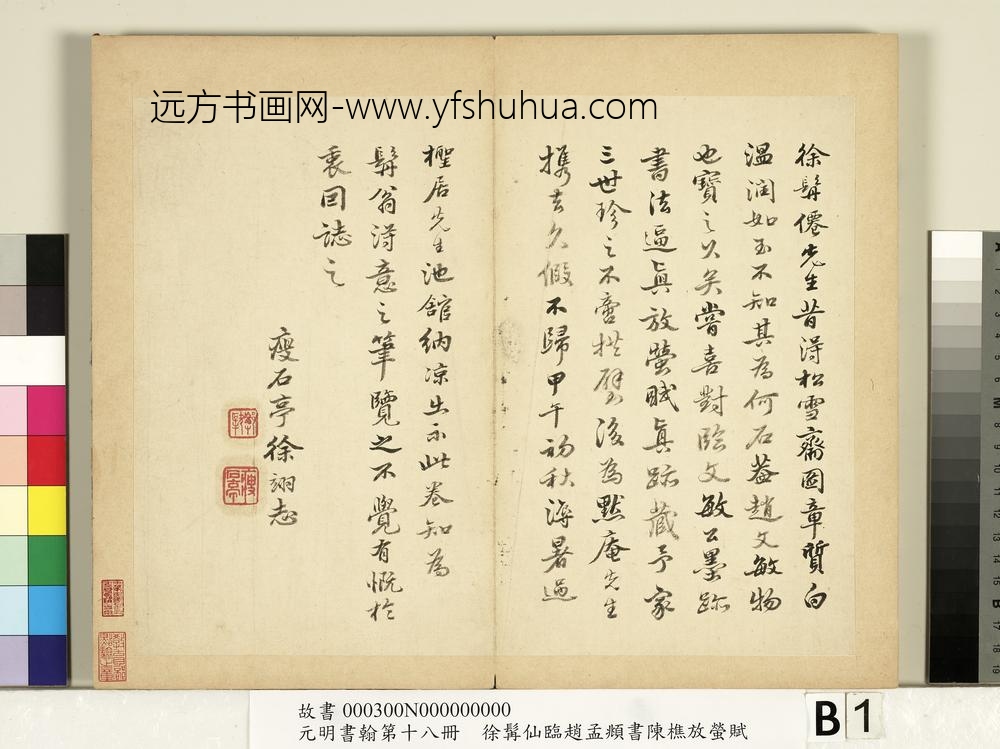 远方书画网-www.yfshuhua.com
徐髯僊先生昔得松雪齋圖章質白
溫潤如玉不知其為何石蓋趙文敏物
也寶之久矣嘗喜對臨文敏公墨跡
書法逼真放螢賦真跡藏予家
三世珍之不啻拱璧後為默庵先生
携去久假不歸甲午初秋溽暑過
檉居先生池館納凉出示此卷知為
髯翁得意之筆覽之不覺有慨於
衷因誌之
瘦石亭徐翊志
故書 000300N000000000
元明書翰第十八冊 徐髯仙臨趙孟頫書陳樵放螢賦
B1